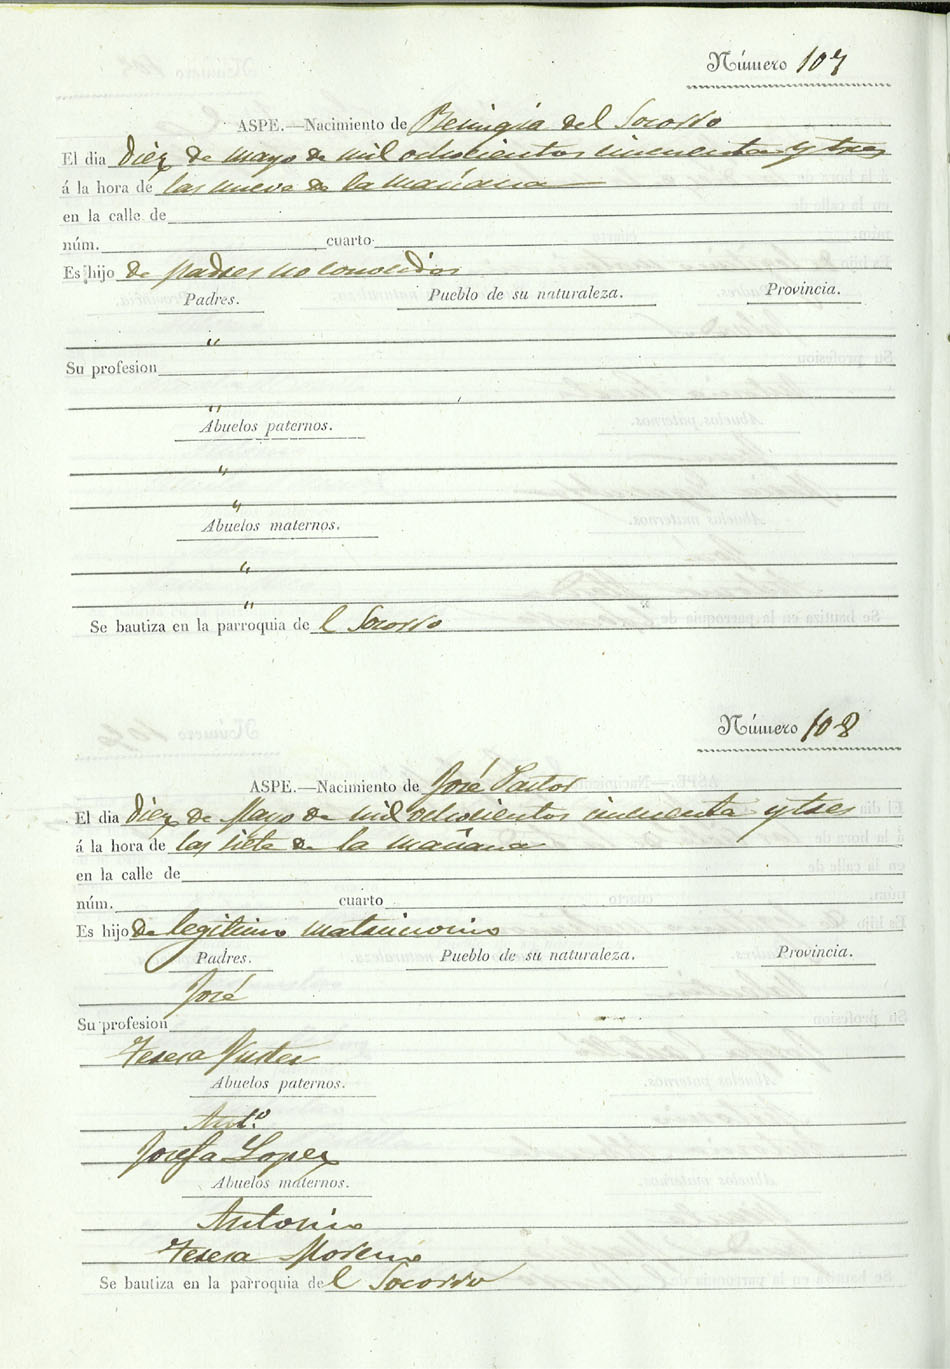 Número 107
ASPE.—Nacimiento de Remigia del Socorro
El dia Diez de mayo de mil ochocientos cincuenta y tres
á la hora de las nueve de la mañana
en la calle de
núm. cuarto
Es hijo de padres no conocidos
Padres. Pueblo de su naturaleza. Provincia.
"
Su profesion
"
Abuelos paternos.
"
"
Abuelos maternos.
"
"
Se bautiza en la parroquia de l Socorro
Número 108
ASPE.—Nacimiento de José Pastor
El dia Diez de Mayo de mil ochocientos cincuenta y tres
á la hora de las siete de la mañana
en la calle de
núm. cuarto
Es hijo de legitimo matrimonio
Padres. Pueblo de su naturaleza. Provincia.
José
Su profesion
Teresa
Abuelos paternos.
Ant.º
Josefa Lopez
Abuelos maternos.
Antonio
Teresa Moreno
Se bautiza en la parroquia de l Socorro